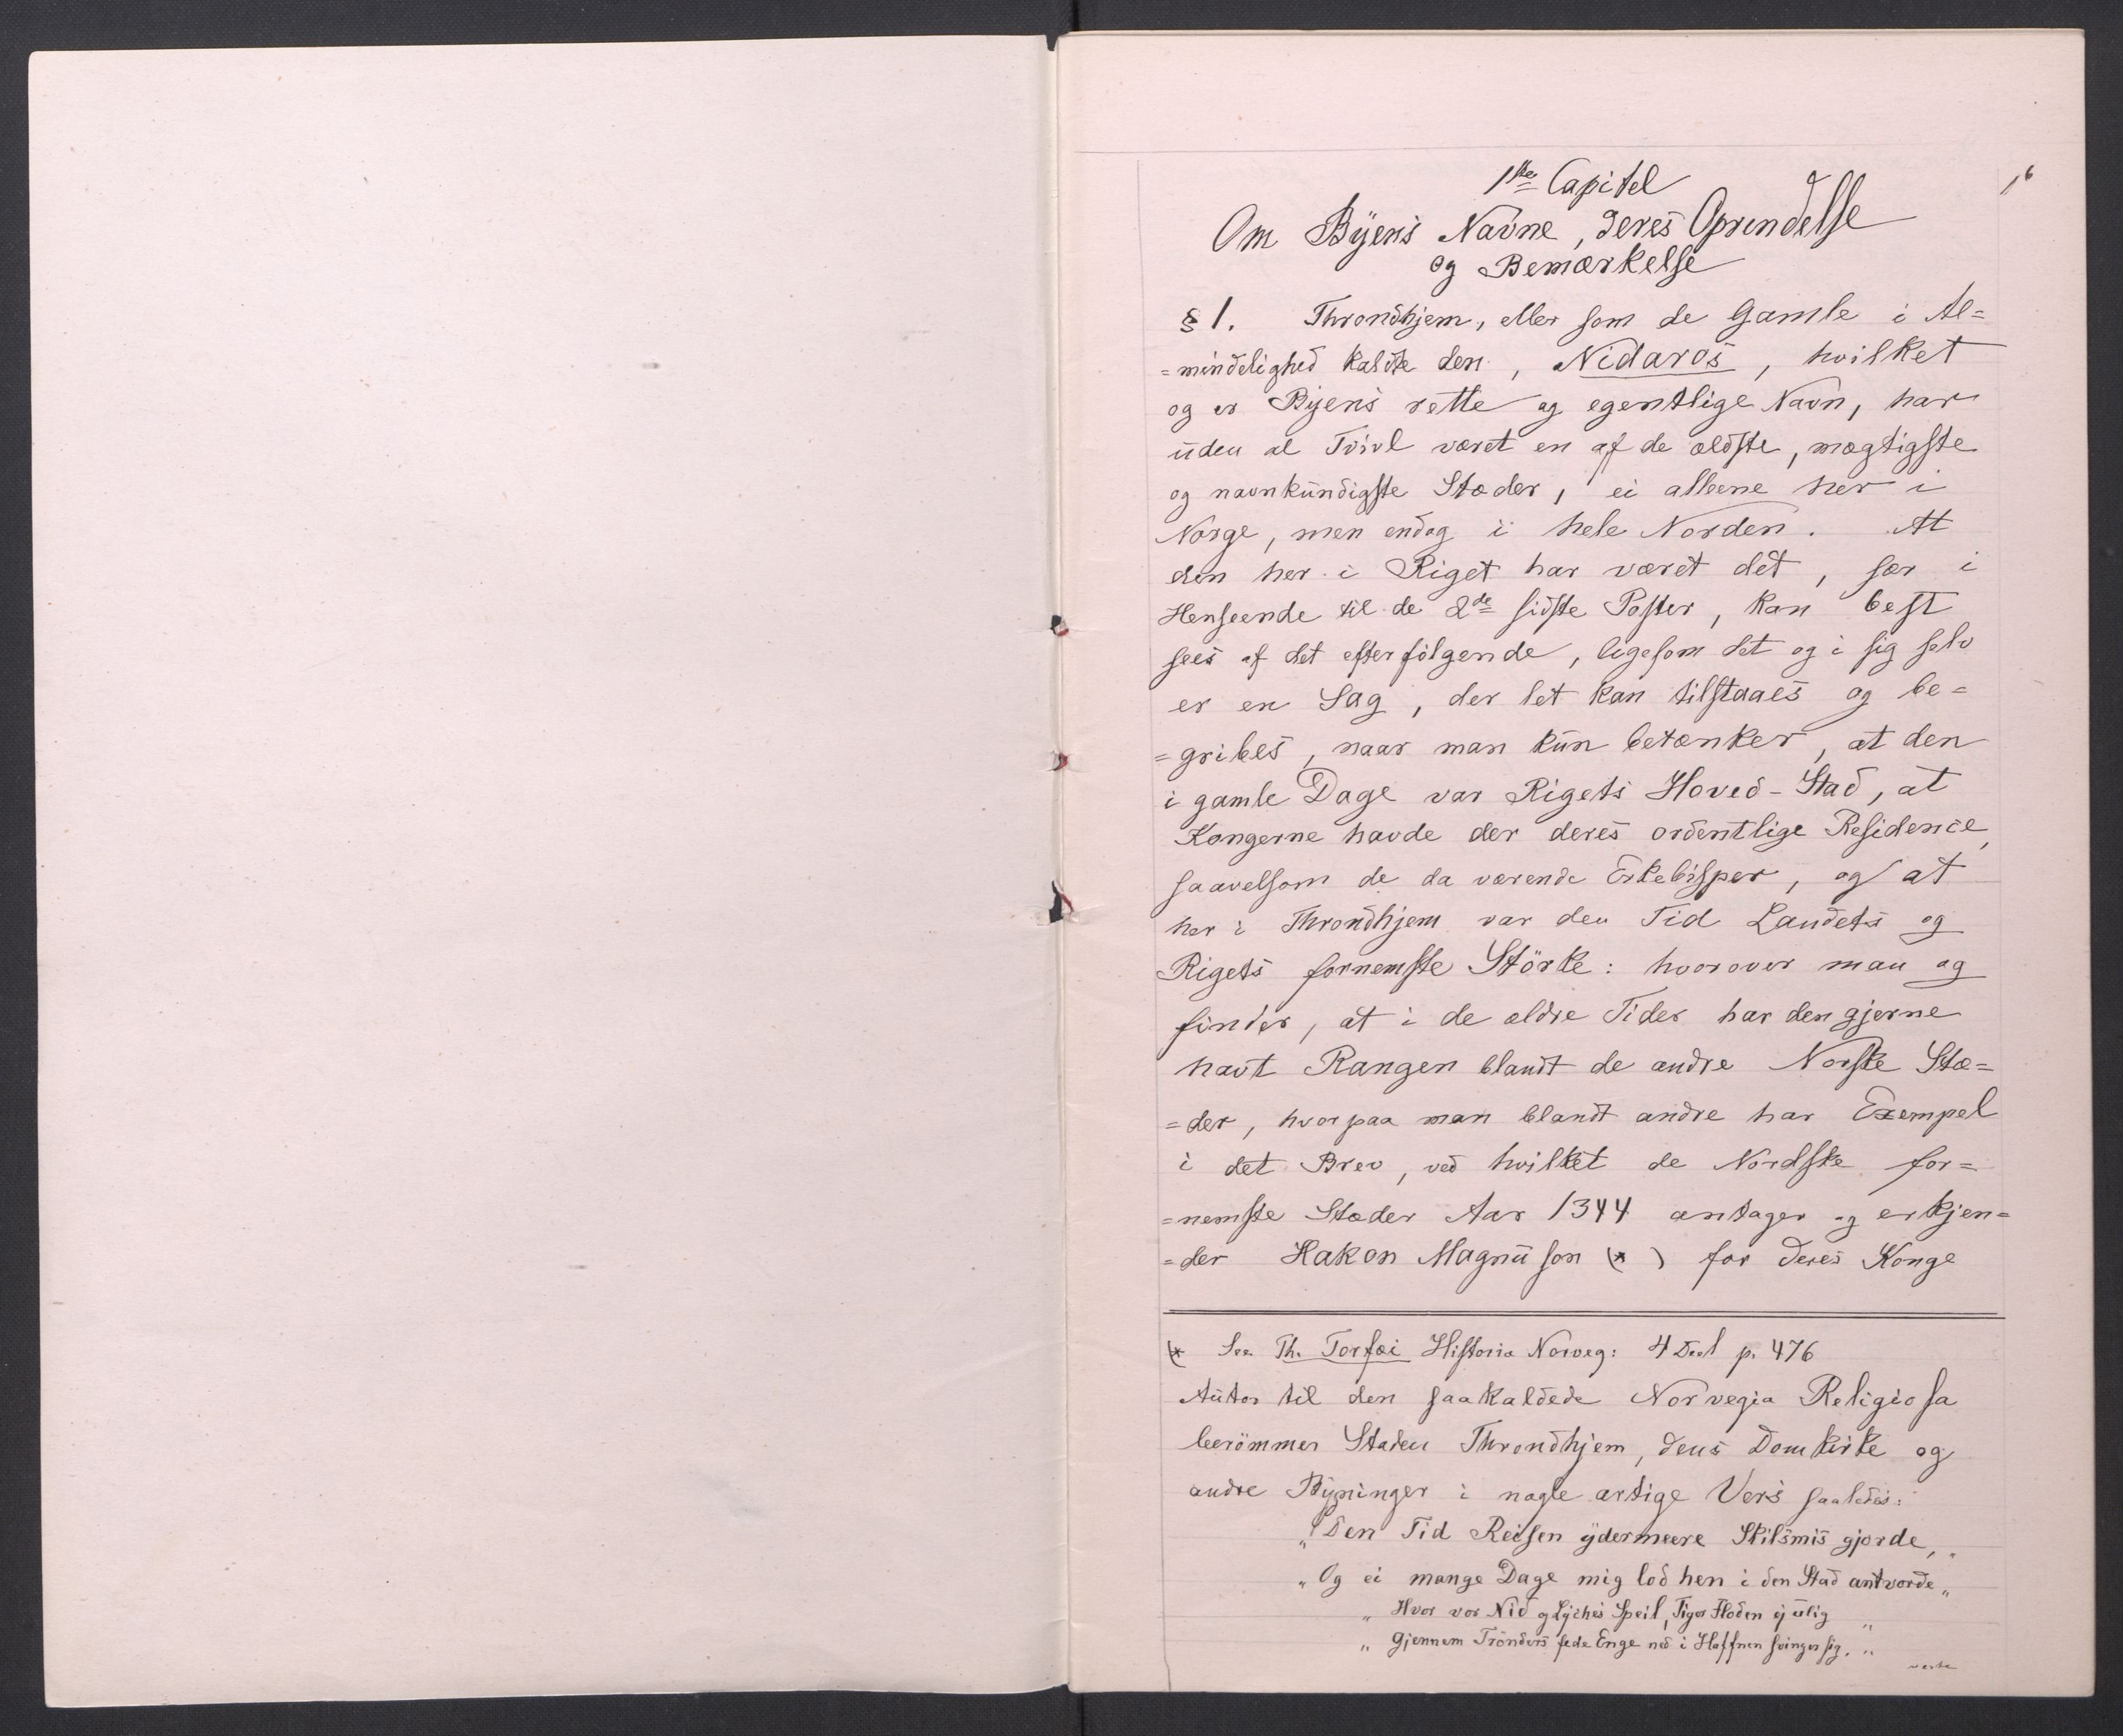 1ste Capitel
Om Byens Navne, deres Oprindelse
og Bemærkelse
§ 1. Throndhjem, eller som de Gamle i Al=
=mindelighed kaldte den, Nidaros, hvilket
og er Byens rette og egentlige Navn, har
uden al Tvivl været en af de ældste, mægtigste
og navnkundigste Stæder, ei alleene her i
Norge, men endog i hele Norden. At
den her i Riget har været det, sær i
Henseende til de 2de sidste Poster, kan best
sees af det efterfølgende, ligesom det og i sig selv
er en Sag, der let kan tilstaaes og be=
=gribes, naar man kun betænker, at den
i gamle Dage var Rigets Hoved-Stad, at
Kongerne havde der deres ordentlige Residence,
saavelsom de da værende Erkebisper, og at
her i Throndhjem var den Tid Landets og
Rigets fornemste Störke: hvorover man og
finder, at i de ældre Tider har den gjerne
havt Rangen blandt de andre Norske Stæ=
=der, hvorpaa man blandt andre har Exempel
i det Brev, ved hvilket de Nordske for=
=nemste Stæder Aar 1344 antager og erkjen=
=der Hakon Magnuson (*) for deres Konge
(* See Th. Torfæi Historia Norveg: 4 Deel p. 476
Autor til den saakaldede Norvegia Religiosa
berömmer Staden Throndhjem, dens Domkirke og
andre Bygninger i nogle artige Vers saaledes:
"Den Tid Reisen ydermeere Skilsmis gjorde,"
"Og ei mange Dage mig lod hen i den Stad antvorde"
"Hvor vor Nid og Lyches Speil, Tiger Floden ej ulig"
"Gjennem Trönders fede Enge ned i Haffnen svinger sig."